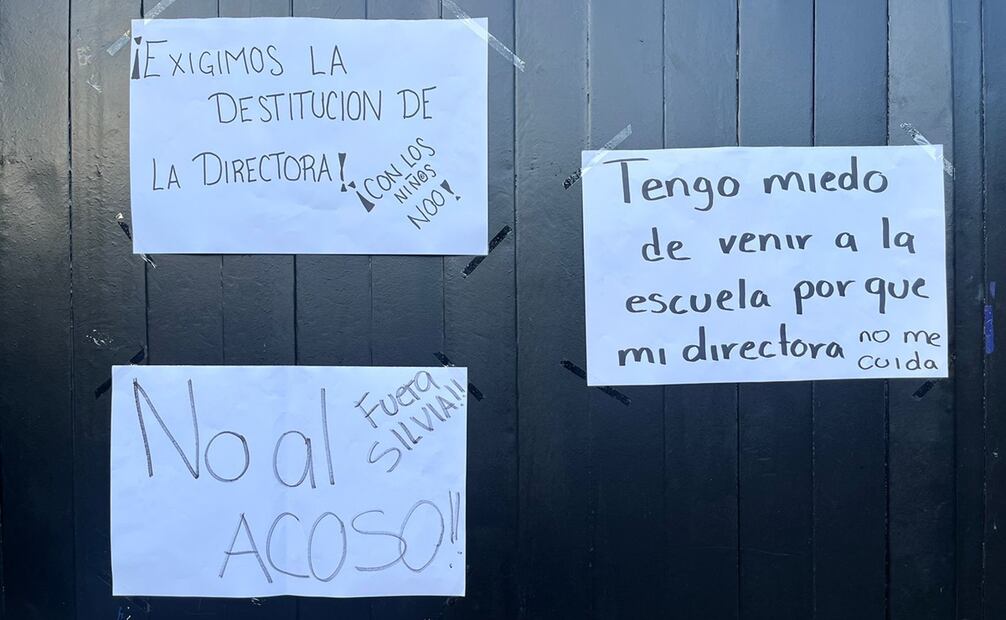 ¡EXIGIMOS LA
DESTITUCION DE
LA DIRECTORA!
¡CON LOS
NIÑOS
NOO!
Tengo miedo
de venir a la
escuela por que
mi directora no me
cuida
No al
ACOSO!!
Fuera
SILVIA!!